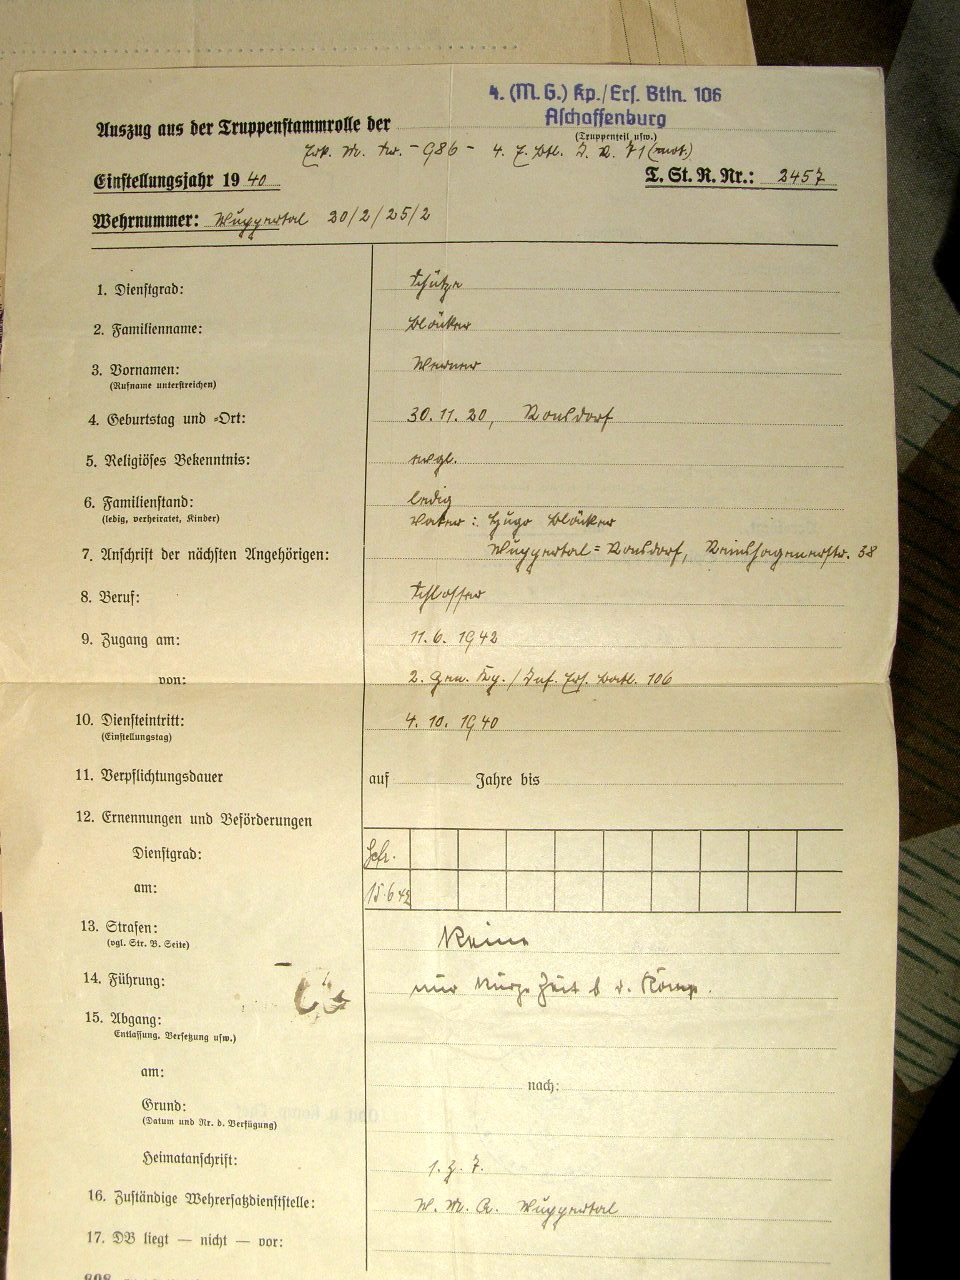 4. (M. G.) Kp./Ers. Btln. 106
Aschaffenburg
Auszug aus der Truppenstammrolle der
(Truppenteil usw.)
Erk. M. Nr. - 986 - 4. E. Btl. I. R. 71 (mot.)
Einstellungsjahr 19 40
T. St. R. Nr.: 2457
Wehrnummer: Wuppertal 20/2/25/2
1. Dienstgrad: Schütze
2. Familienname: Blöcker
3. Vornamen: Werner
(Rufname unterstreichen)
4. Geburtstag und =Ort: 30. 11. 20, Ronsdorf
5. Religiöses Bekenntnis: evgl.
6. Familienstand: ledig
(ledig, verheiratet, Kinder)
Vater: Hugo Blöcker
7. Anschrift der nächsten Angehörigen: Wuppertal = Ronsdorf, Remscheiderstr. 38
8. Beruf: Schlosser
9. Zugang am: 11. 6. 1942
von: 2. Gen. Kp. / Inf. Ers. Batl. 106
10. Diensteintritt: 4. 10. 1940
(Einstellungstag)
11. Verpflichtungsdauer auf Jahre bis
12. Ernennungen und Beförderungen
Dienstgrad: Gefr.
am: 15.6.42
13. Strafen: Keine
(vgl. Str. B. Seite)
14. Führung: nur kurze Zeit b. d. Komp.
15. Abgang:
Entlassung, Versetzung usw.)
am: nach:
Grund:
(Datum und Nr. d. Verfügung)
Heimatanschrift: s. Z. 7.
16. Zuständige Wehrersatzdienststelle: W. M. A. Wuppertal
17. DB liegt — nicht — vor: